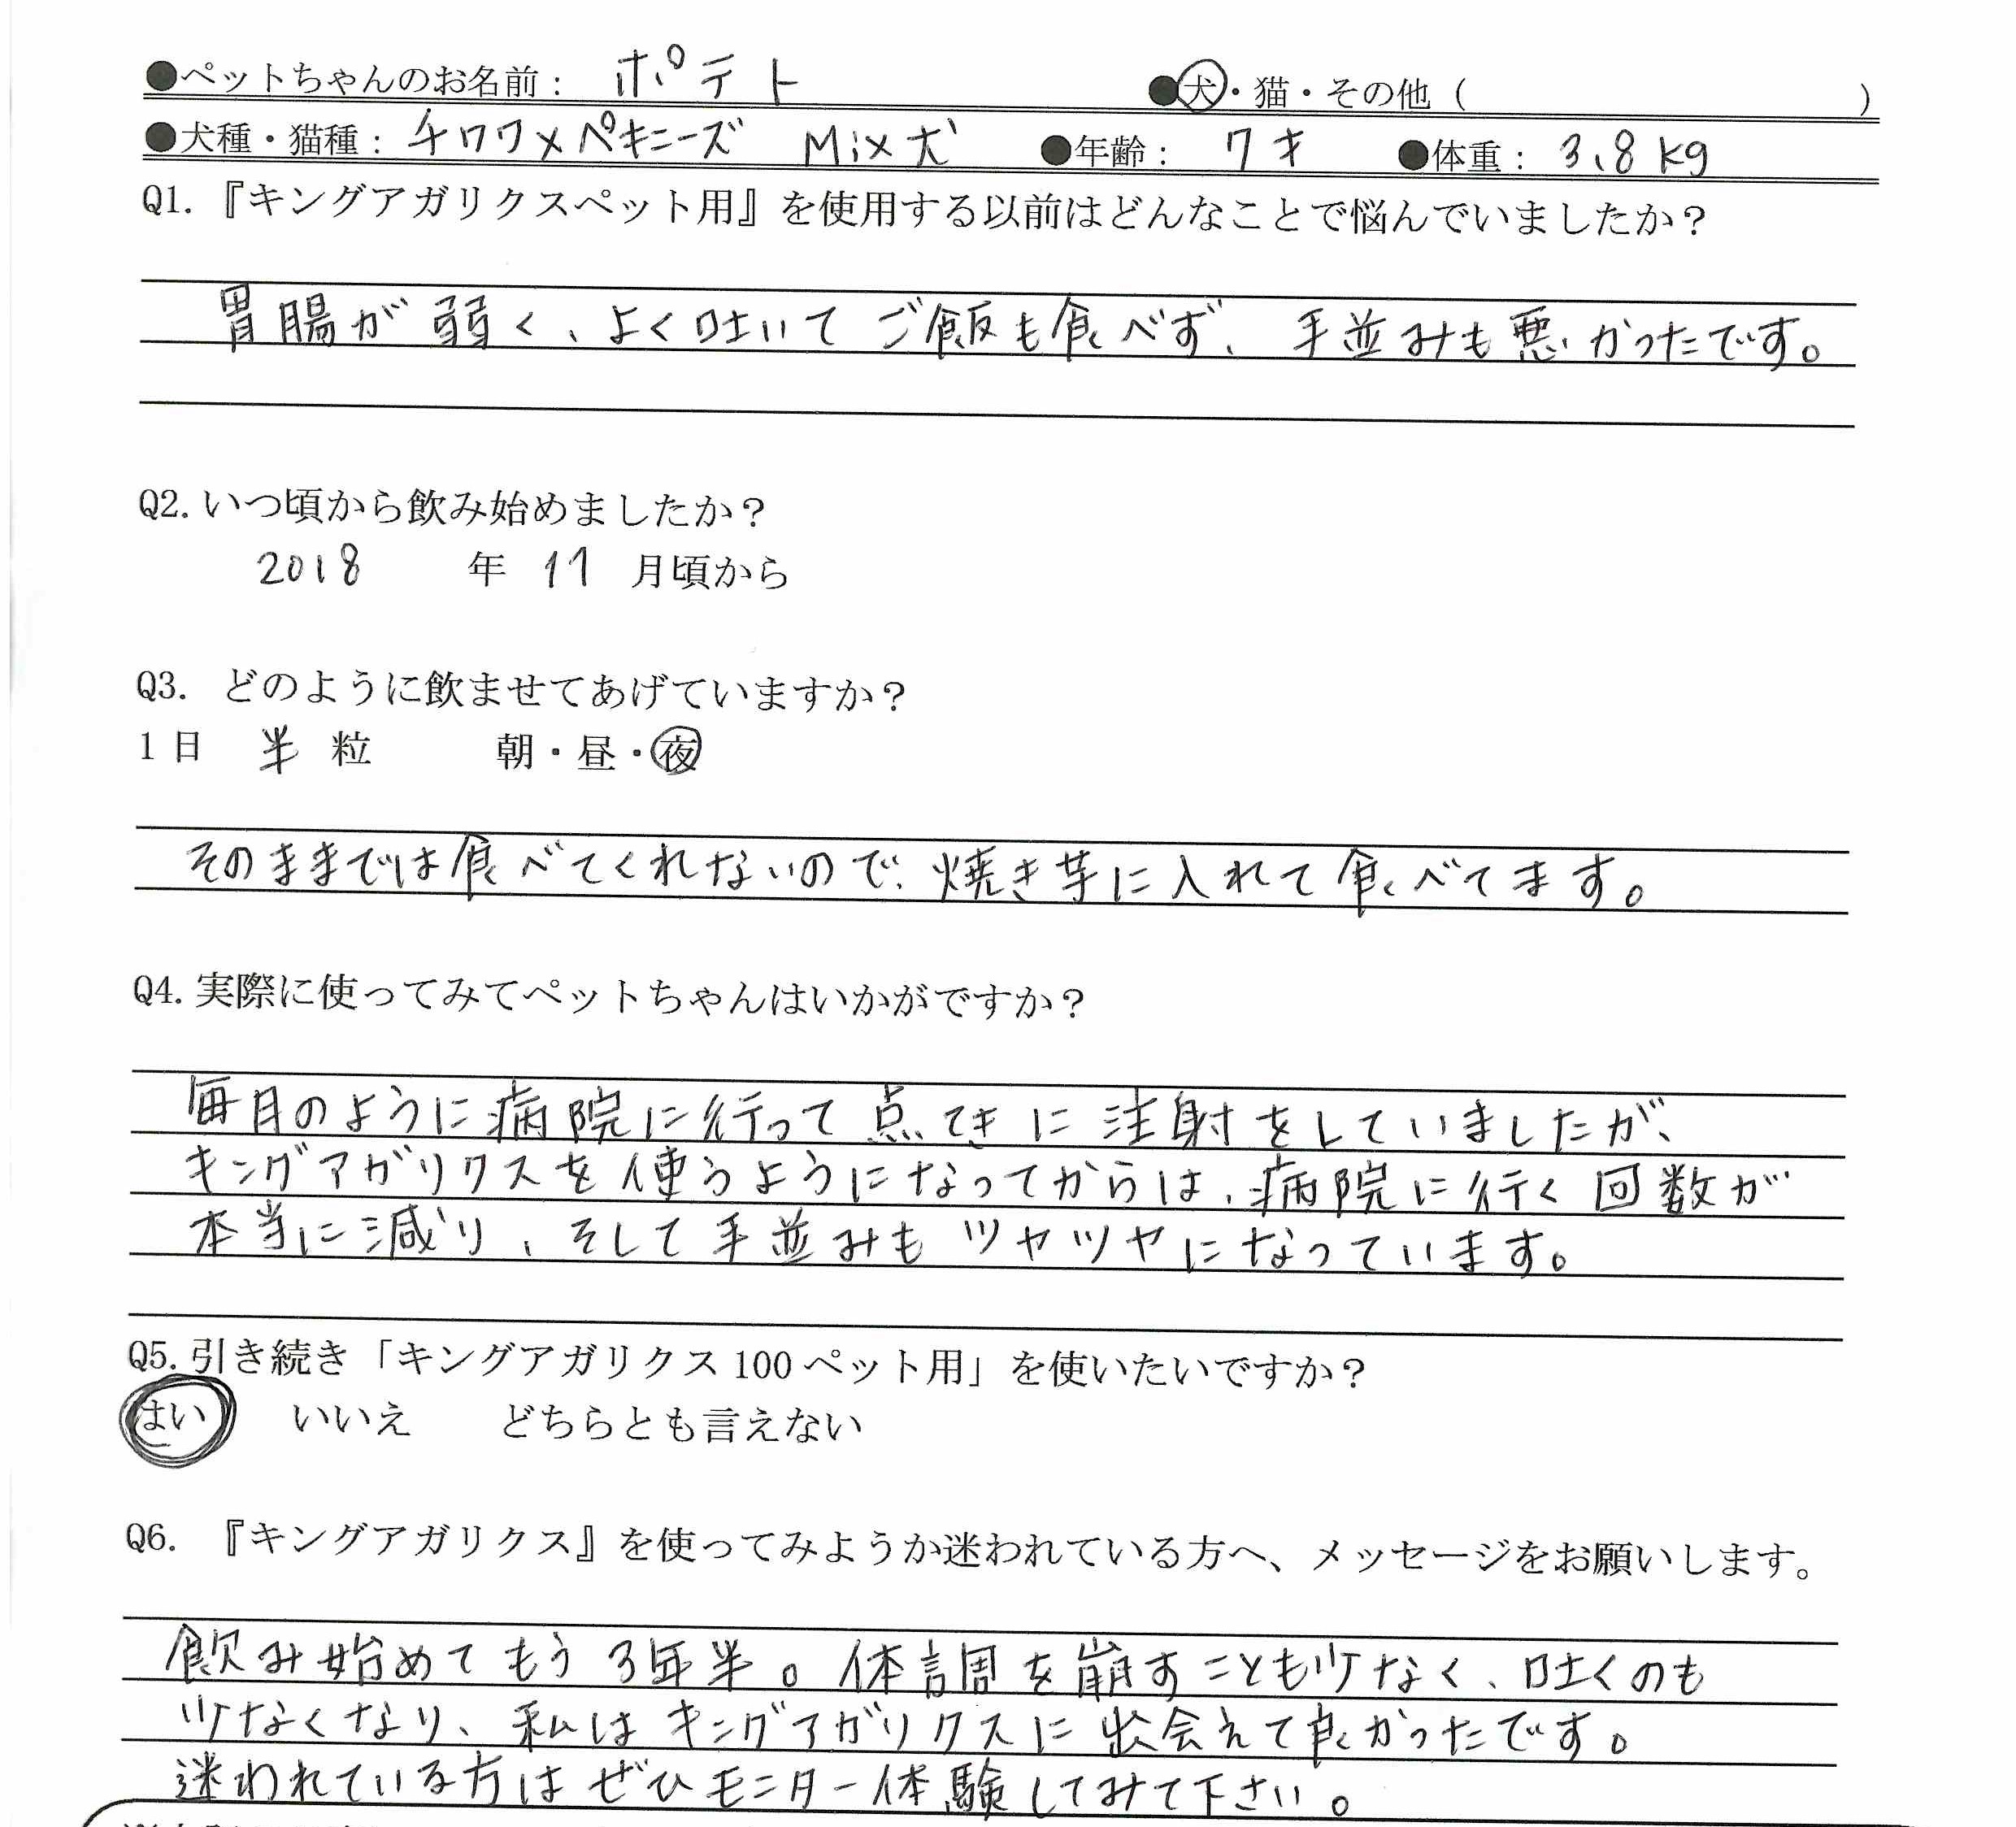 ●ペットちゃんのお名前： ポテト ●犬・猫・その他（ ）
●犬種・猫種：チワワ×ペキニーズ Mix犬 ●年齢： 7才 ●体重： 3.8kg
Q1.『キングアガリクスペット用』を使用する以前はどんなことで悩んでいましたか？
胃腸が弱く、よく吐いてご飯も食べず、手並みも悪かったです。
Q2.いつ頃から飲み始めましたか？
2018 年 11 月頃から
Q3. どのように飲ませてあげていますか？
1日 半 粒 朝・昼・夜
そのままでは食べてくれないので、焼き芋に入れて食べてます。
Q4.実際に使ってみてペットちゃんはいかがですか？
毎月のように病院に行って点てきに注射をしていましたが、
キングアガリクスを使うようになってからは、病院に行く回数が
本当に減り、そして手並みもツヤツヤになっています。
Q5.引き続き「キングアガリクス100ペット用」を使いたいですか？
はい いいえ どちらとも言えない
Q6. 『キングアガリクス』を使ってみようか迷われている方へ、メッセージをお願いします。
飲み始めてもう3年半。体調を崩すことも少なく、吐くのも
少なくなり、私はキングアガリクスに出会えて良かったです。
迷われている方はぜひモニター体験してみて下さい。